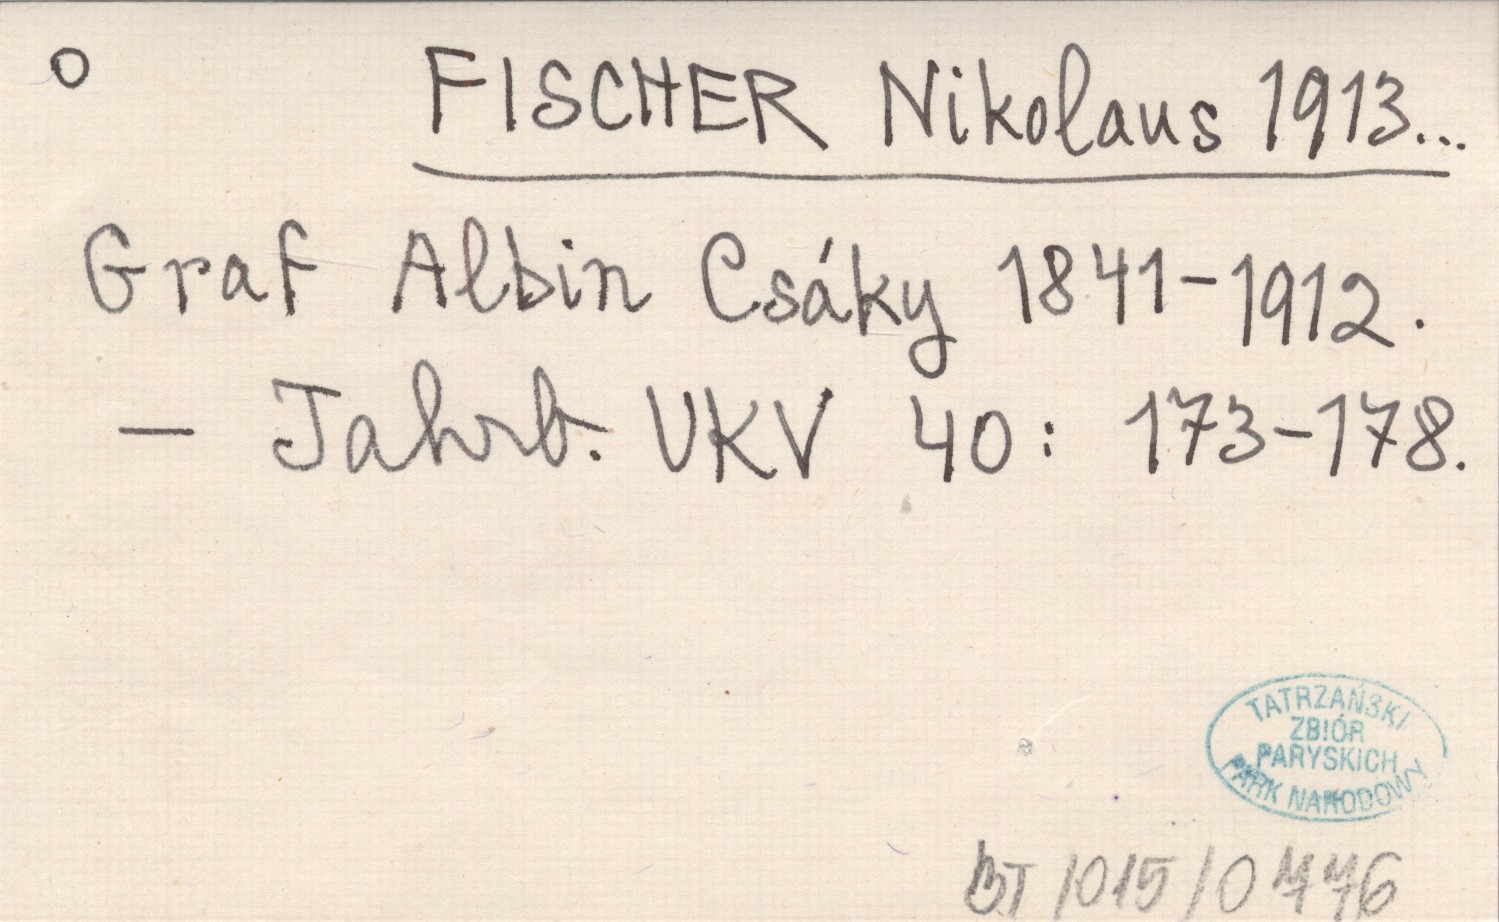 o FISCHER Nikolaus 1913...
Graf Albin Csáky 1841-1912.
— Jahrb. UKV 40: 173-178.
TATRZAŃSKI
ZBIÓR
PARYSKICH
PARK NARODOWY
BT/015/0776